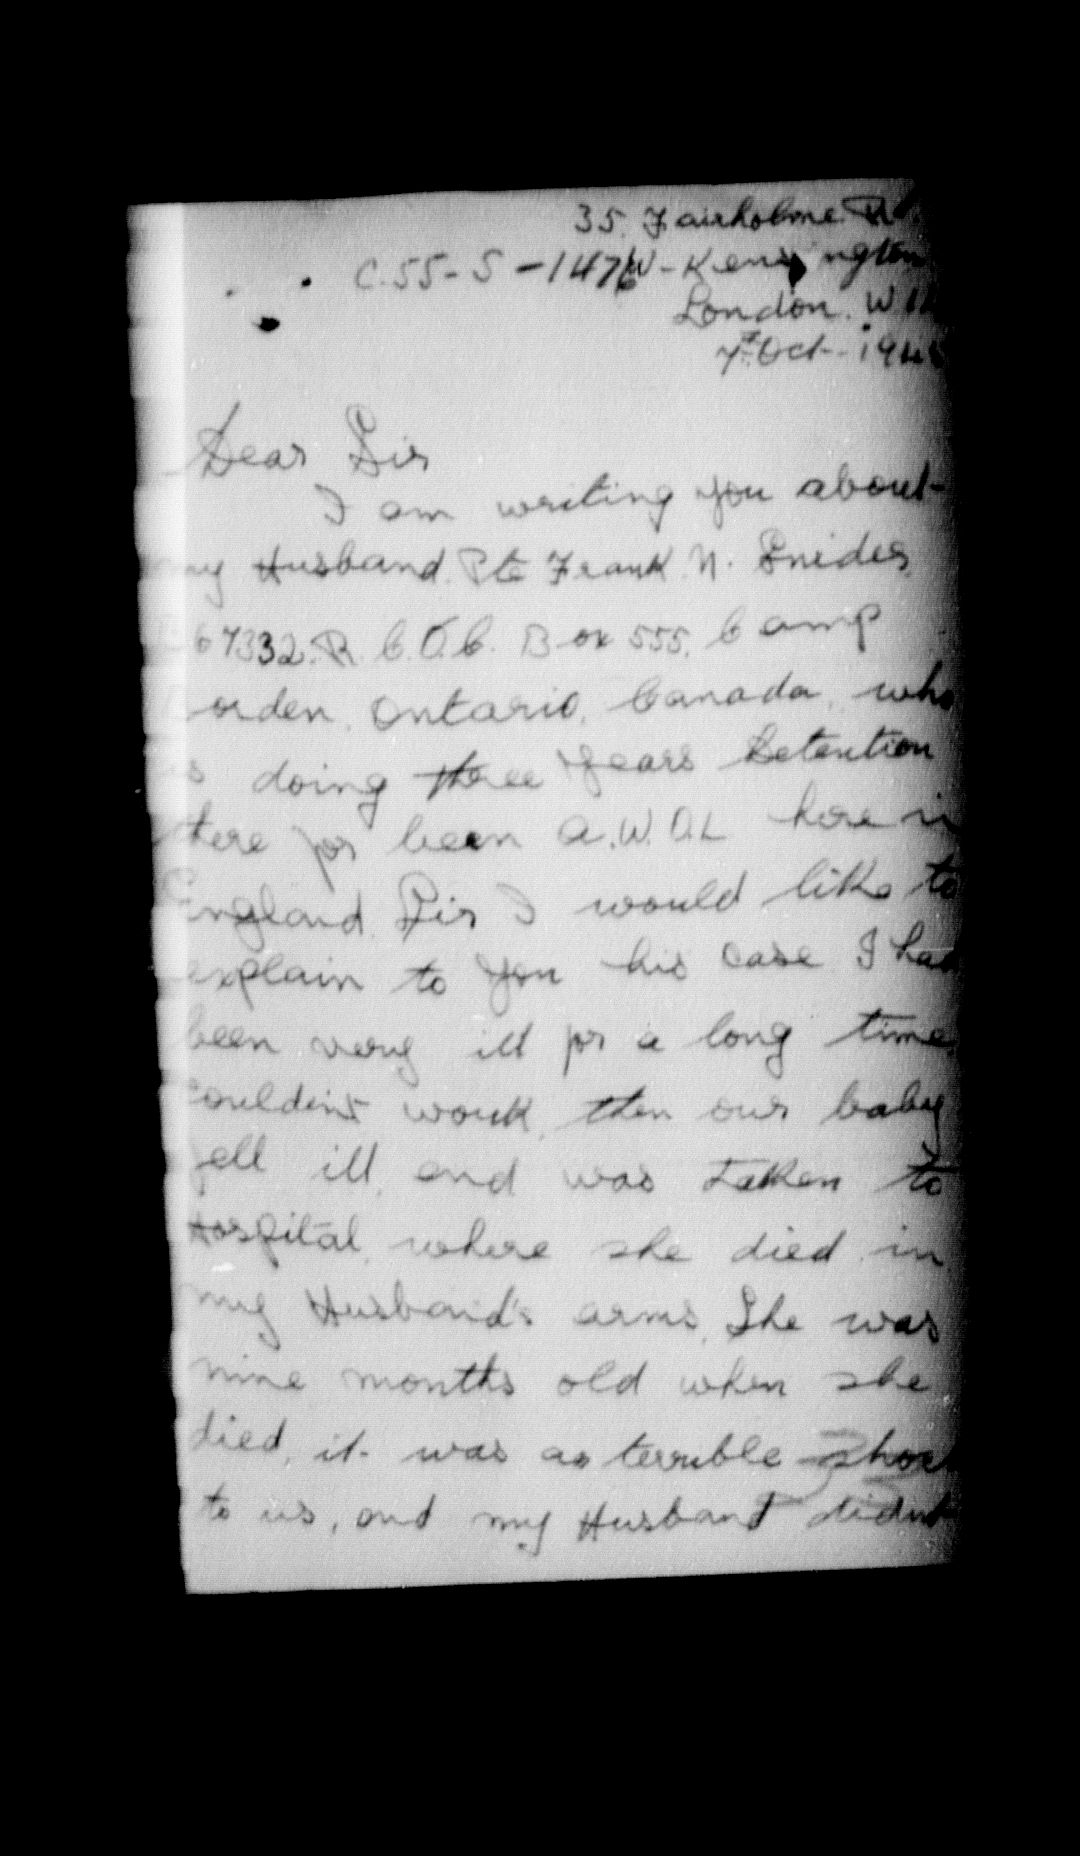 35. Fairholme R
C.55-S-1476 W-Kensington
London. W.
7th Oct- 194
Dear Sir
I am writing you about-
my Husband. Pte Frank. N. Snider.
67332. R. C. O. C. Box 555. Camp
Borden, Ontario, Canada, who
is doing three years Detention
there for been A.W.O.L here in
England. Sir I would like to
explain to you his case I had
been very ill for a long time
couldint work, then our baby
fell ill, and was taken to
Hospital, where she died in
my Husband's arms, She was
nine months old when she
died, it was as terrible shock
to us, and my Husband didnt